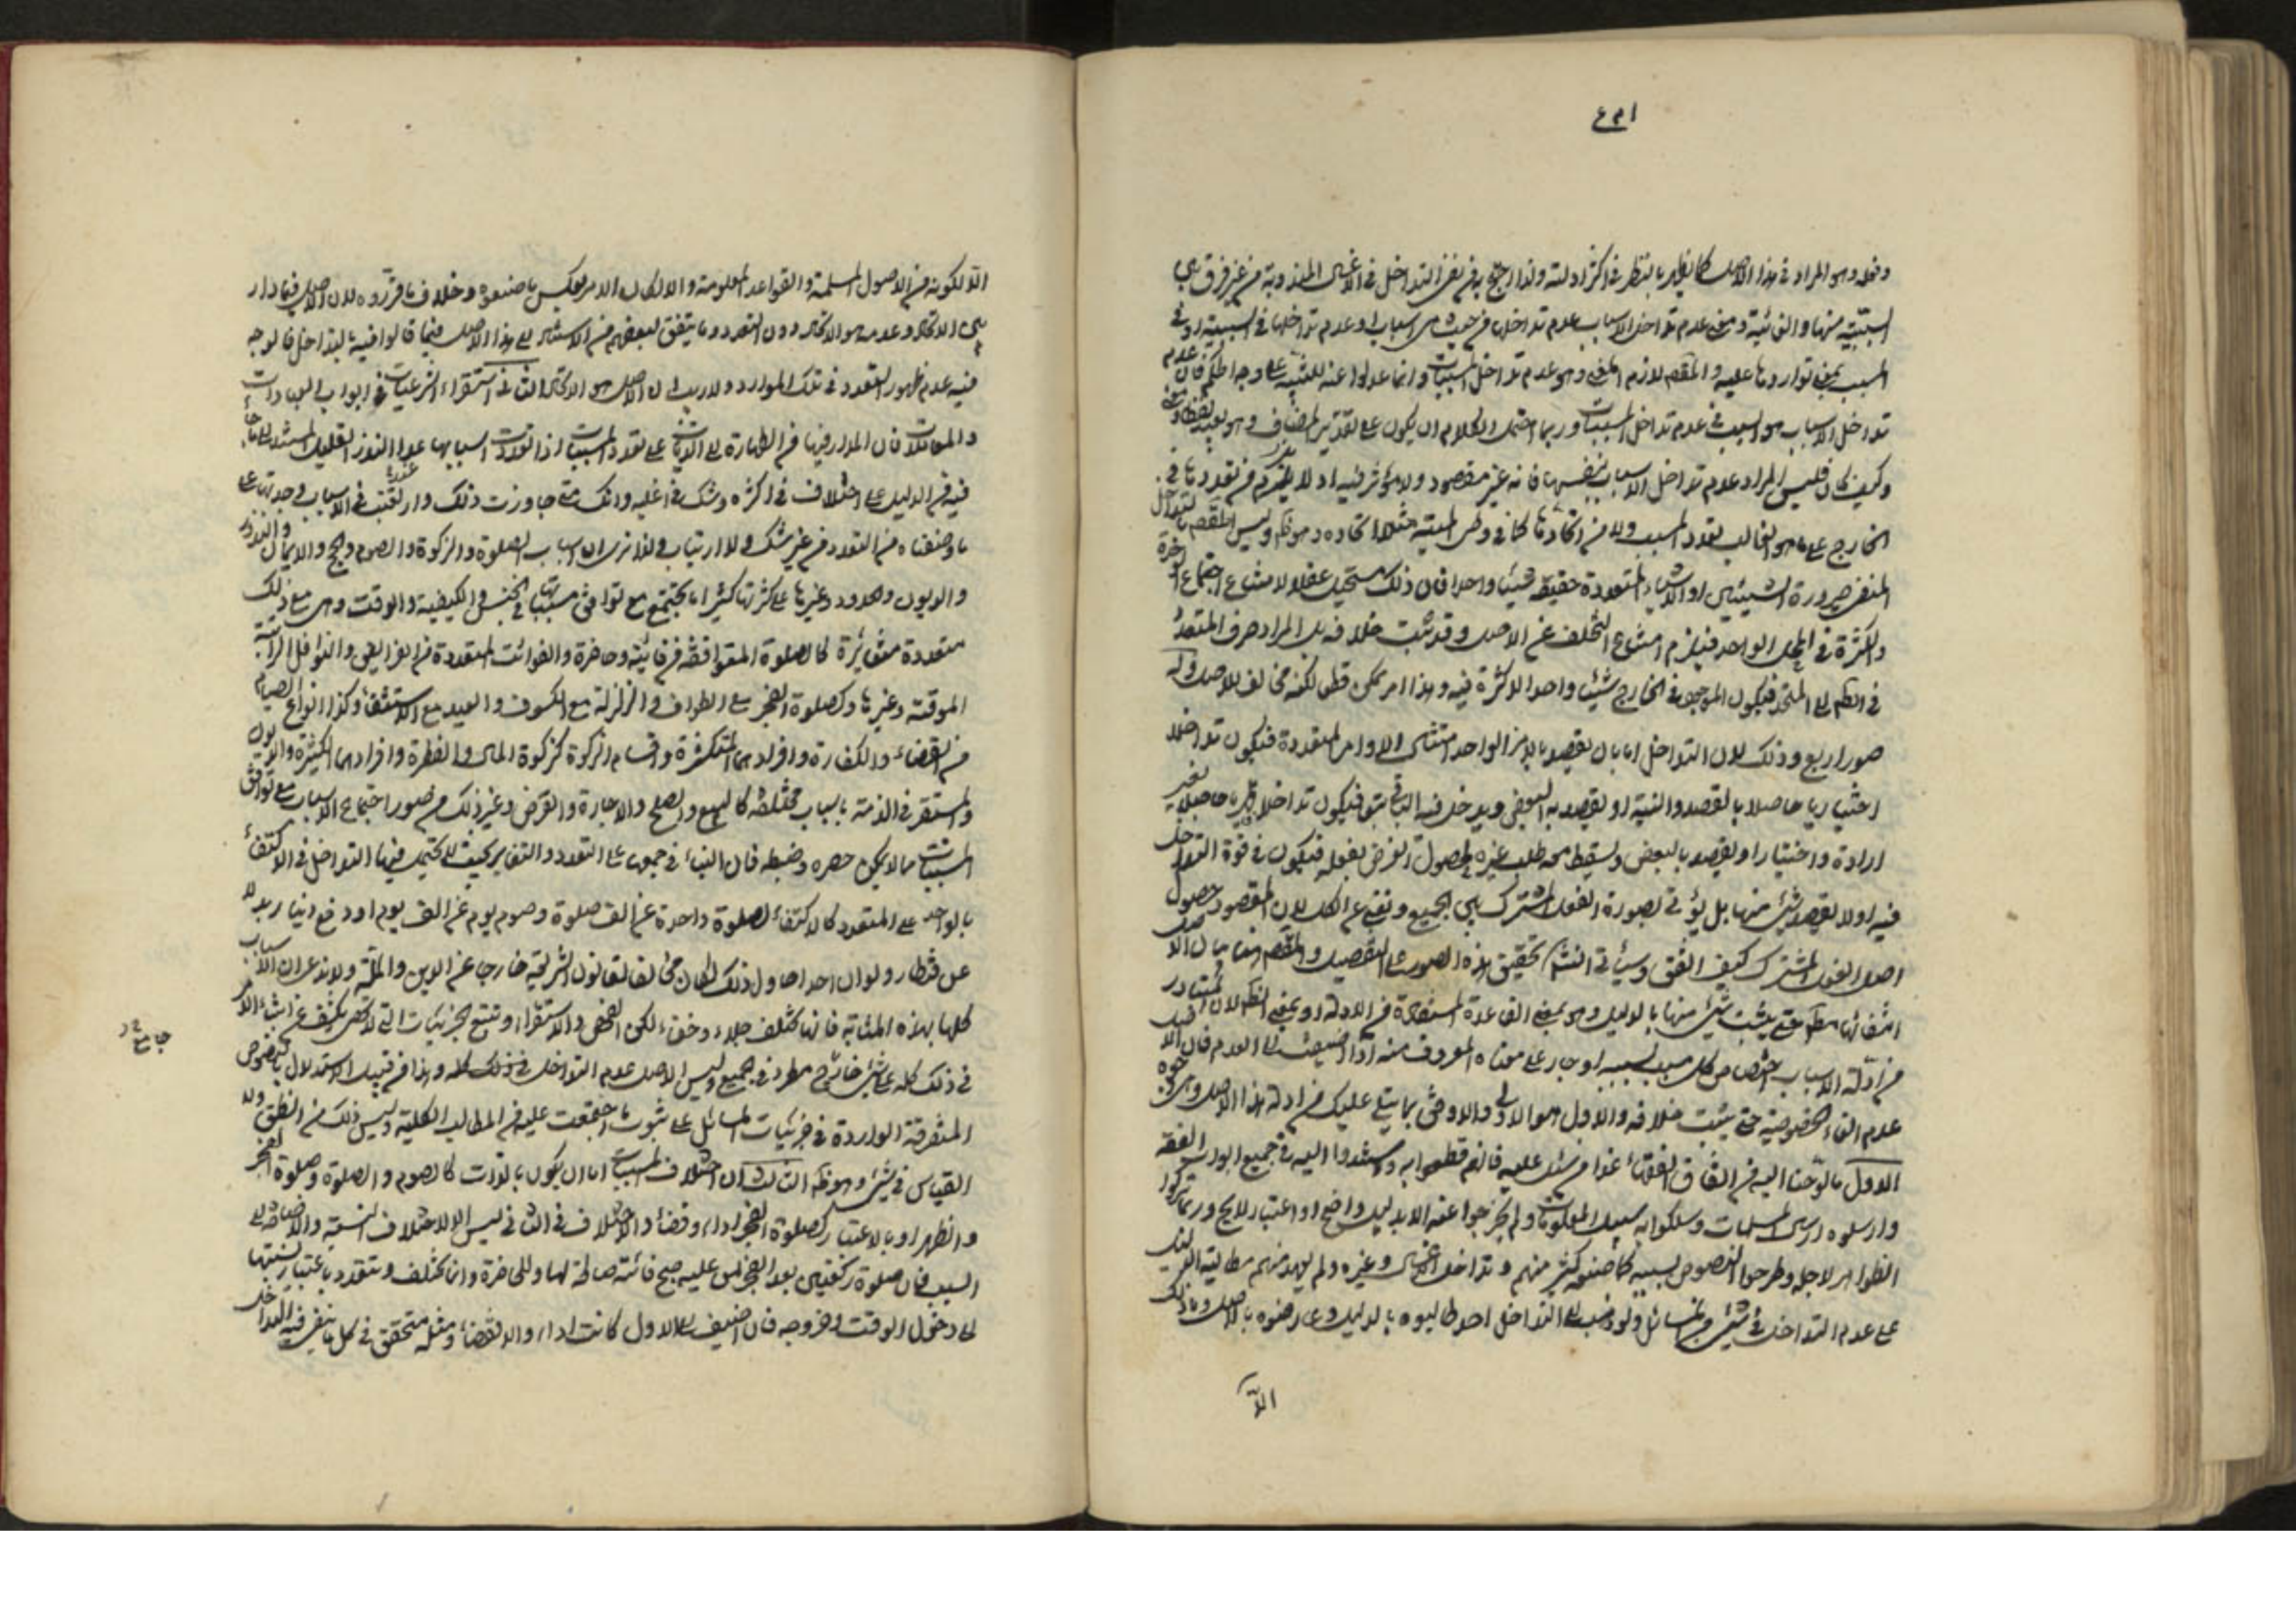 وفعله وهو المراد في هذا الاصل كما يظهر بالنظر في اكثر ادلته ولذا احتج به في نفي التداخل في الاغسال المندوبة من غير فرق بين
السببية منها والغائية ومعنى عدم تداخل الاسباب عدم تداخلها من حيث هي اسباب او عدم تداخلها في السببية او في
المسبب بمعنى تواردها عليه والمقصود لازم المعنى وهو عدم تداخل المسببات وانما عدلوا عنه للتنبيه على وجه الحكم فان عدم
تداخل الاسباب هو السبب في عدم تداخل المسببات وربما احتمل الكلام ان يكون على تقدير المضاف وهو بعيد لفظا ومعنى
وكيف كان فليس المراد عدم تداخل الاسباب بنفسها فانه غير مقصود ولا مؤثر فيه اذ لا يلزم من تعددها في
الخارج على ما هو الغالب تعدد المسبب ولا من اتحادها كما في وطى الميتة مثلا اتحاده وهو ظاهر وليس المقصود بالتداخل
المنفي صيرورة الشيئين او الاشياء المتعددة حقيقة شيئا واحدا فان ذلك مستحيل عقلا لامتناع اجتماع الوحدة
والكثرة في المحل الواحد فيلزم امتناع التخلف عن الاصل وقد ثبت خلافه بل المراد صرف المتعدد
في الظاهر الى المتحد فيكون الموجود في الخارج شيئا واحدا لا كثرة فيه وهذا امر ممكن قطعا لكنه مخالف للاصل وله
صور اربع وذلك لان التداخل اما بان يقصد بالامر الواحد امتثال الاوامر المتعددة فيكون تداخلا
اختياريا حاصلا بالقصد والنية او يقصد به البعض ويدخل فيه الباقي فيكون تداخلا قهريا حاصلا بغير
ارادة واختيار او يقصد بالبعض ويسقط معه طلب غيره لحصول الغرض بفعله فيكون في قوة التداخل
فيه او لا يقصد شيء منها بل يؤتى بصورة الفعل المشترك بين الجميع ويغني عن الكل لان المقصود حصول
اصل الفعل المشترك كيف اتفق وسيأتي انشاء الله تحقيق هذه الصور على التفصيل والمقصود هنا بيان الاصل
انتفائها مطلقا حتى يثبت شيء منها بالدليل وهو بمعنى القاعدة المستفادة من الادلة او بمعنى الظاهر لان المتبادر
من ادلة الاسباب اختصاص كل مسبب بسببه او جار على معناه المعروف منه اذا اضيف الى العدم فان الاصل
عدم الغاء الخصوصية حتى يثبت خلافه والاول هو الاولى والاوفق بما يتلى عليك من ادلة هذا الاصل وهي وجوه
الاول ما لوحنا اليه من اتفاق الفقهاء عدا من شذ عليه فانهم قطعوا به واستندوا اليه في جميع ابواب الفقه
وارسلوه ارسال المسلمات وسلكوا به سبيل المعلومات ولم يخرجوا عنه الا بدليل واضح او اعتبار لايح وربما تركوا
الظواهر لاجله وطرحوا النصوص بسببه كما صنعه كثير منهم في تداخل الاغسال وغيره ولم يعهد منهم مطالبة الدليل
على عدم التداخل في شيء من المسائل ولو ذهب الى التداخل احد طالبوه بالدليل وعارضوه بالاصل وما ذلك
الا
الا لكونه من الاصول المسلمة والقواعد المعلومة والا لكان الامر بعكس ما صنعوه وخلاف ما قرروه لان الاصل فيما دار
بين الاتحاد وعدمه هو الاتحاد دون التعدد وما يتفق لبعضهم من الاستناد الى هذا الاصل فيما قالوا فيه بالتداخل فالوجه
فيه عدم ظهور التعدد في تلك الموارد ولا ريب ان الاصل هو الاتحاد الثاني استقراء الشرعيات في ابواب العبادات
والمعاملات فان المدار فيها من الطهارة الى الديات على تعدد المسببات اذا تعددت اسبابها عدا النزر القليل المستند الى ما جاء
فيه من الدليل على اختلاف في اكثره وشك في اغلبه وانك متى جاوزت ذلك وارتقيت في الاسباب وجدتها على
ما وصفناه من التعدد من غير شك ولا ارتياب ولذا ترى ان اسباب الصلوة والزكوة والصوم والحج والايمان والنذور
والديون والحدود وغيرها على كثرتها كثيرا ما تجتمع مع توافق مسبباتها في الجنس والكيفية والوقت وهي مع ذلك
متعددة متغائرة كالصلوة المتوافقة من فائتة وحاضرة والفوائت المتعددة من الفرائض والنوافل الراتبة
الموقتة وغيرها وكصلوة الفجر مع الطواف والزلزلة مع الكسوف والعيد مع الاستسقاء وكذا انواع الصيام
من القضاء والكفارة وافرادهما المتكثرة واقسام الزكوة كزكوة المال والفطرة وافرادهما الكثيرة والديون
والمستقر في الذمة باسباب مختلفة كالبيع والصلح والاجارة والقرض وغير ذلك من صور اجتماع الاسباب مع توافق
المسببات مما لا يمكن حصره وضبطه فان البناء في جميعها على التعدد والتغاير بحيث لا يحتمل فيها التداخل في الاكتفاء
بالواحد على المتعدد كالاكتفاء بصلوة واحدة عن الف صلوة وصوم يوم عن الف يوم او دفع دينار بدلا
عن قنطار ولو ان احدا حاول ذلك لكان مخالفا لقانون الشريعة خارجا عن الدين والملة ولا ندعي ان الاسباب
كلها بهذه المثابة فانها تختلف جلاء وخفاء لكن الفحص والاستقراء وتتبع الجزئيات التي لا تحصى يكشف عن ابتناء الامر
في ذلك كله على شيء جامع مطرد في الجميع وليس الا اصل عدم التداخل في ذلك كله وهذا من قبيل الاستدلال بالنصوص
المتفرقة الواردة في جزئيات المسائل على ثبوت ما اجتمعت عليه من المطالب الكلية وليس ذلك من الظن ولا
القياس في شيء وهو ظاهر الثالث ان اختلاف المسببات اما ان يكون بالذات كالصوم والصلوة وصلوة الفجر
والظهر او بالاعتبار كصلوة الفجر اداء وقضاء والاختلاف في الثاني ليس الا لاختلاف النسبة والاضافة الى
السبب فان صلوة ركعتين بعد الفجر لمن عليه صبح فائتة صالحة لها وللحاضرة وانما تختلف وتتعدد باعتبار نسبتها
الى دخول الوقت وخروجه فان اضيف الى الاول كانت اداء والا فقضاء ومثله متحقق في كل ما ينفى فيه التداخل